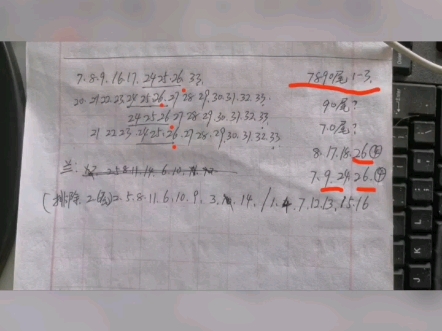 7.8.9.16.17.24.25.26.33
7890尾1-3
20.21.22.23.24.25.26.27.28.29.30.31.32.33
90尾?
24.25.26.27.28.29.30.31.32.33
70尾?
21.22.23.24.25.26.27.28.29.30.31.32.33
8.17.18.26
兰:
2.5.8.11.14.6.10.
7.9.24.26.
(排除2.
2.5.8.11.6.10.9.3.
14./1.4.7.12.13.15.16